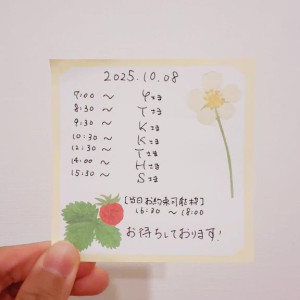 2025.10.08
7:00 〜 Yさま
8:30 〜 Tさま
9:30 〜 Kさま
10:30 〜 Kさま
12:30 〜 Tさま
14:00 〜 Hさま
15:30 〜 Sさま
[当日お約束可能枠]
16:30 〜 18:00
お待ちしております!